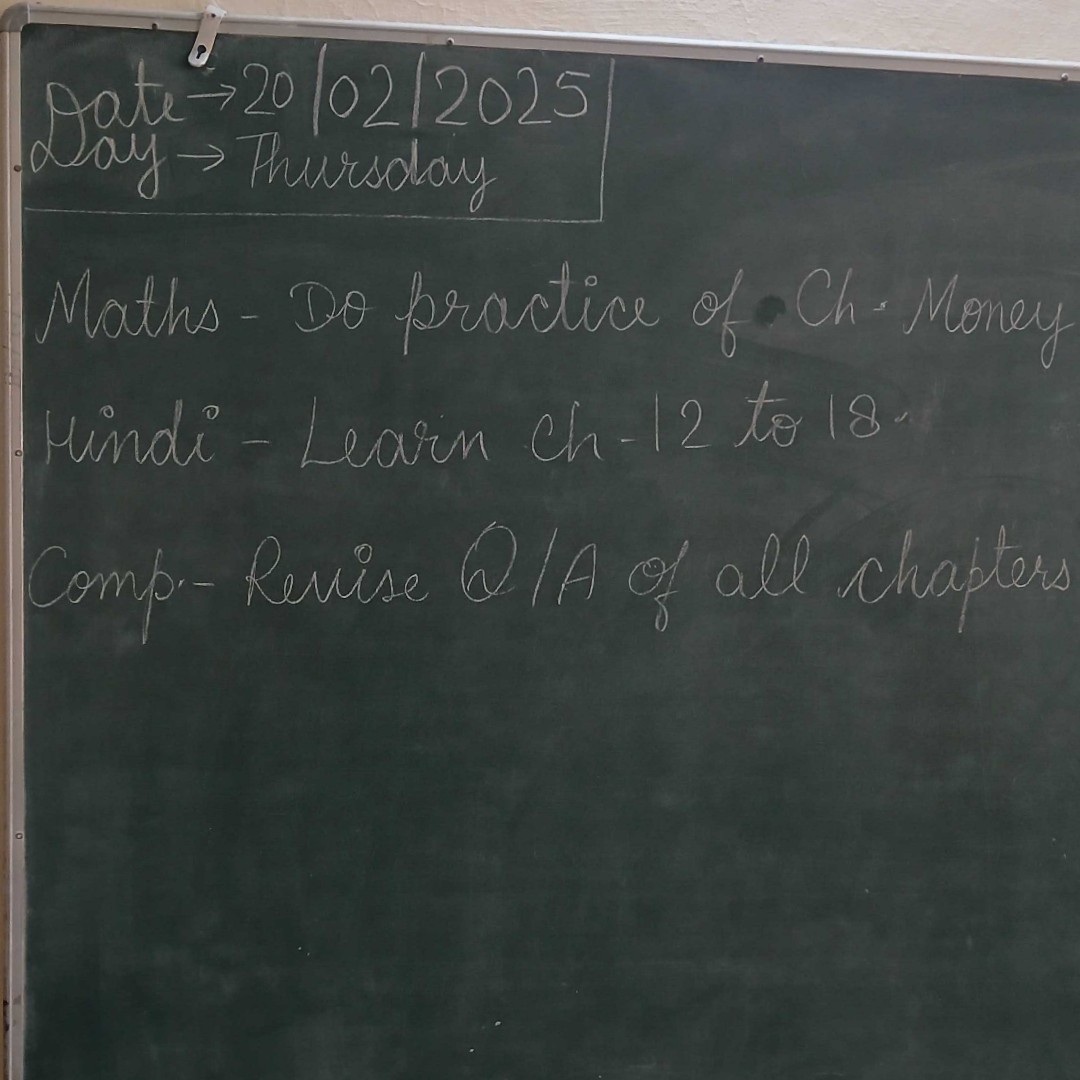 Date → 20/02/2025
Day → Thursday
Maths - Do practice of Ch - Money
Hindi - Learn Ch - 12 to 18.
Comp. - Revise Q/A of all chapters